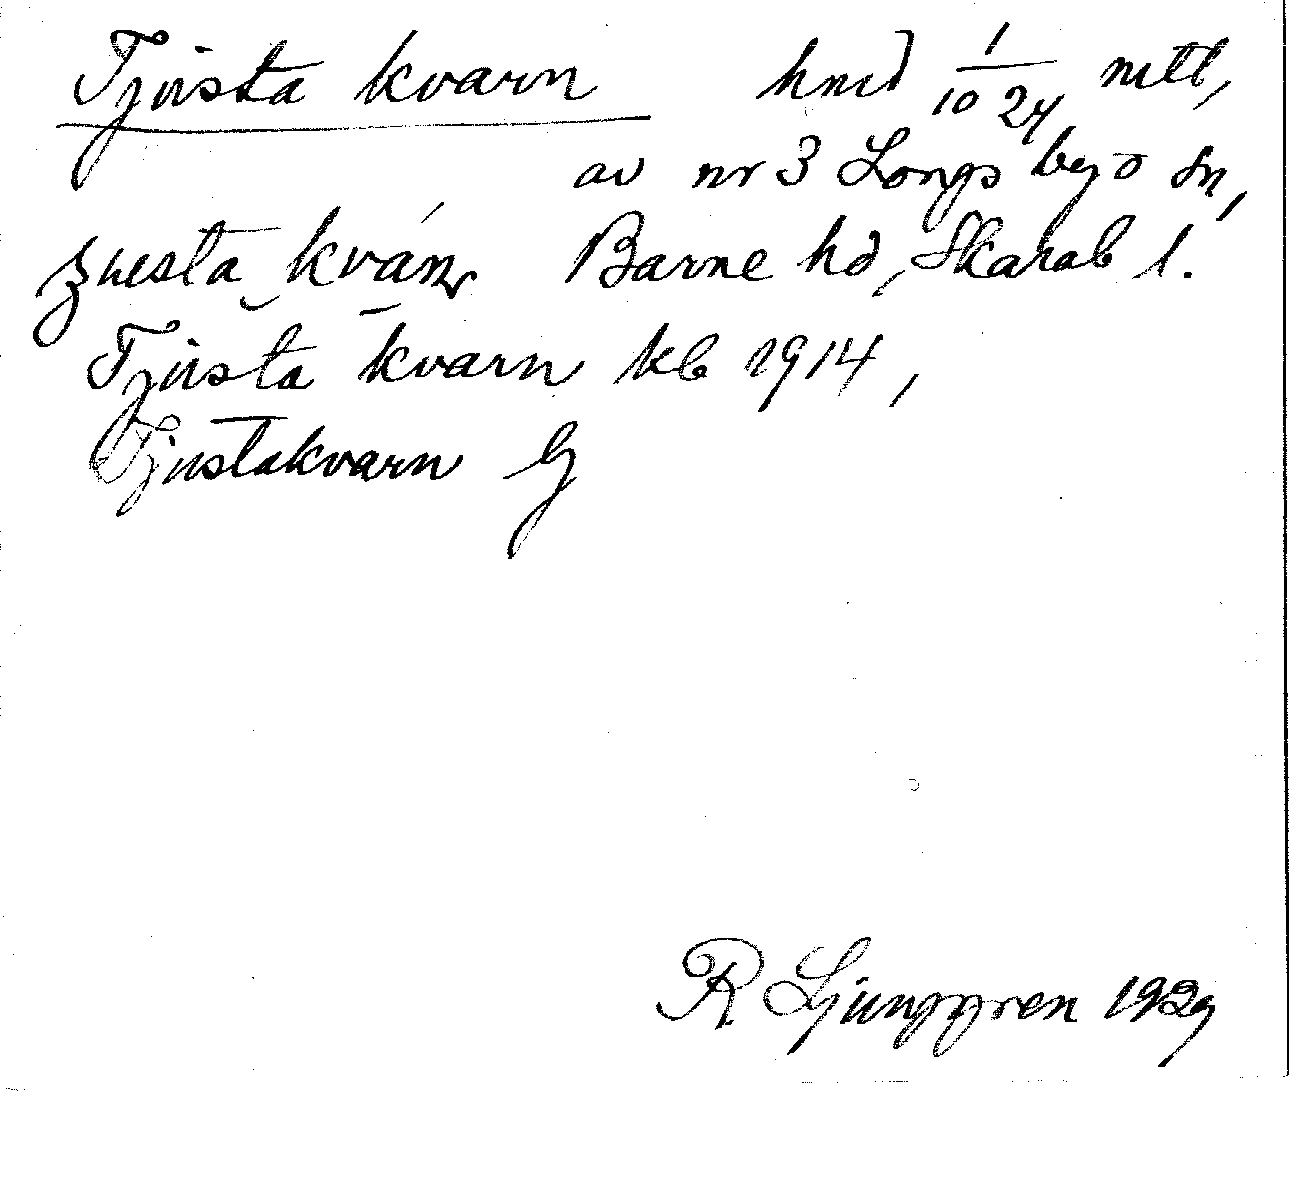 Tjusta kvarn hmd 1/1024 mtl,
av nr 3 Longs by o sn,
ʒusta kván, Barne hd, Skarab l.
Tjusta kvarn kb 1914,
Tjustakvarn G
R Ljunggren 1929